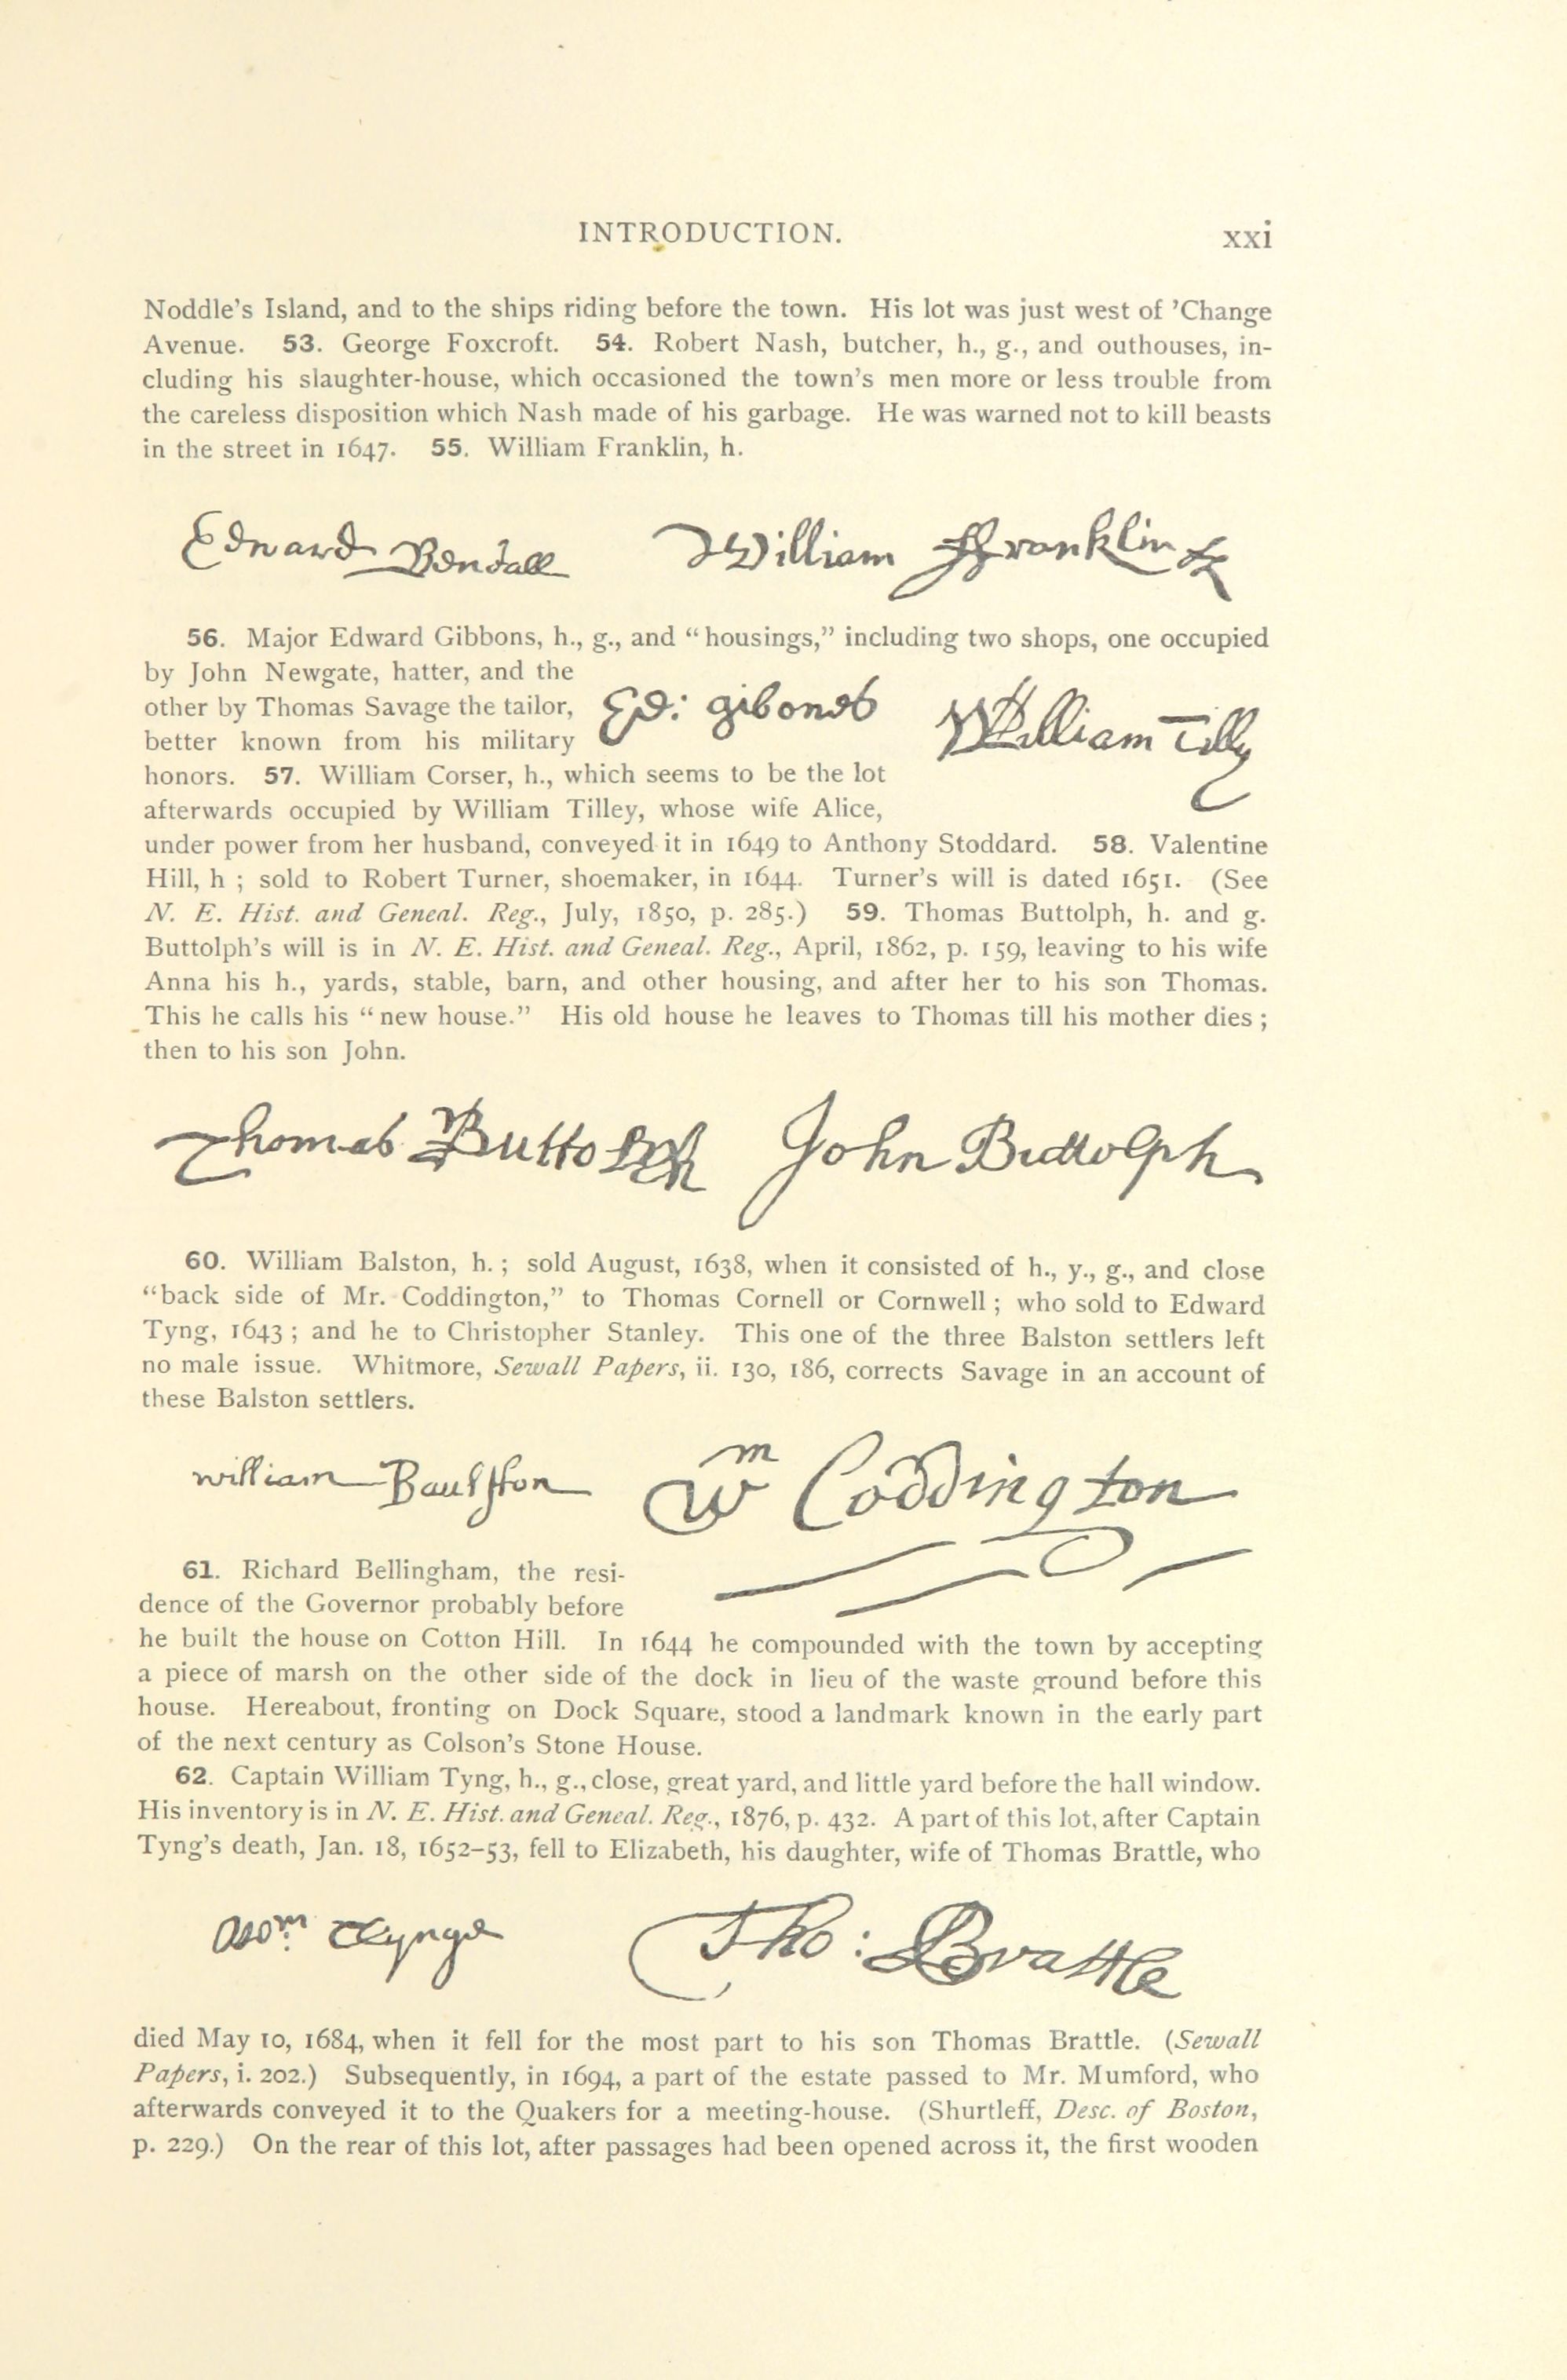 INTRODUCTION. xxi
Noddle's Island, and to the ships riding before the town. His lot was just west of 'Change
Avenue. 53. George Foxcroft. 54. Robert Nash, butcher, h., g., and outhouses, in-
cluding his slaughter-house, which occasioned the town's men more or less trouble from
the careless disposition which Nash made of his garbage. He was warned not to kill beasts
in the street in 1647. 55. William Franklin, h.
Edward Bendall William ffranklin
56. Major Edward Gibbons, h., g., and “housings,” including two shops, one occupied
by John Newgate, hatter, and the
other by Thomas Savage the tailor,
better known from his military
Ed: gibones William Tilly
honors. 57. William Corser, h., which seems to be the lot
afterwards occupied by William Tilley, whose wife Alice,
under power from her husband, conveyed it in 1649 to Anthony Stoddard. 58. Valentine
Hill, h ; sold to Robert Turner, shoemaker, in 1644. Turner's will is dated 1651. (See
N. E. Hist. and Geneal. Reg., July, 1850, p. 285.) 59. Thomas Buttolph, h. and g.
Buttolph's will is in N. E. Hist. and Geneal. Reg., April, 1862, p. 159, leaving to his wife
Anna his h., yards, stable, barn, and other housing, and after her to his son Thomas.
This he calls his “new house.” His old house he leaves to Thomas till his mother dies ;
then to his son John.
Thomas Buttolph John Buttolph
60. William Balston, h. ; sold August, 1638, when it consisted of h., y., g., and close
“back side of Mr. Coddington,” to Thomas Cornell or Cornwell ; who sold to Edward
Tyng, 1643 ; and he to Christopher Stanley. This one of the three Balston settlers left
no male issue. Whitmore, Sewall Papers, ii. 130, 186, corrects Savage in an account of
these Balston settlers.
william Baulston Wm Coddington
61. Richard Bellingham, the resi-
dence of the Governor probably before
he built the house on Cotton Hill. In 1644 he compounded with the town by accepting
a piece of marsh on the other side of the dock in lieu of the waste ground before this
house. Hereabout, fronting on Dock Square, stood a landmark known in the early part
of the next century as Colson's Stone House.
62. Captain William Tyng, h., g., close, great yard, and little yard before the hall window.
His inventory is in N. E. Hist. and Geneal. Reg., 1876, p. 432. A part of this lot, after Captain
Tyng's death, Jan. 18, 1652–53, fell to Elizabeth, his daughter, wife of Thomas Brattle, who
Wm Tynge Tho: Brattle
died May 10, 1684, when it fell for the most part to his son Thomas Brattle. (Sewall
Papers, i. 202.) Subsequently, in 1694, a part of the estate passed to Mr. Mumford, who
afterwards conveyed it to the Quakers for a meeting-house. (Shurtleff, Desc. of Boston,
p. 229.) On the rear of this lot, after passages had been opened across it, the first wooden